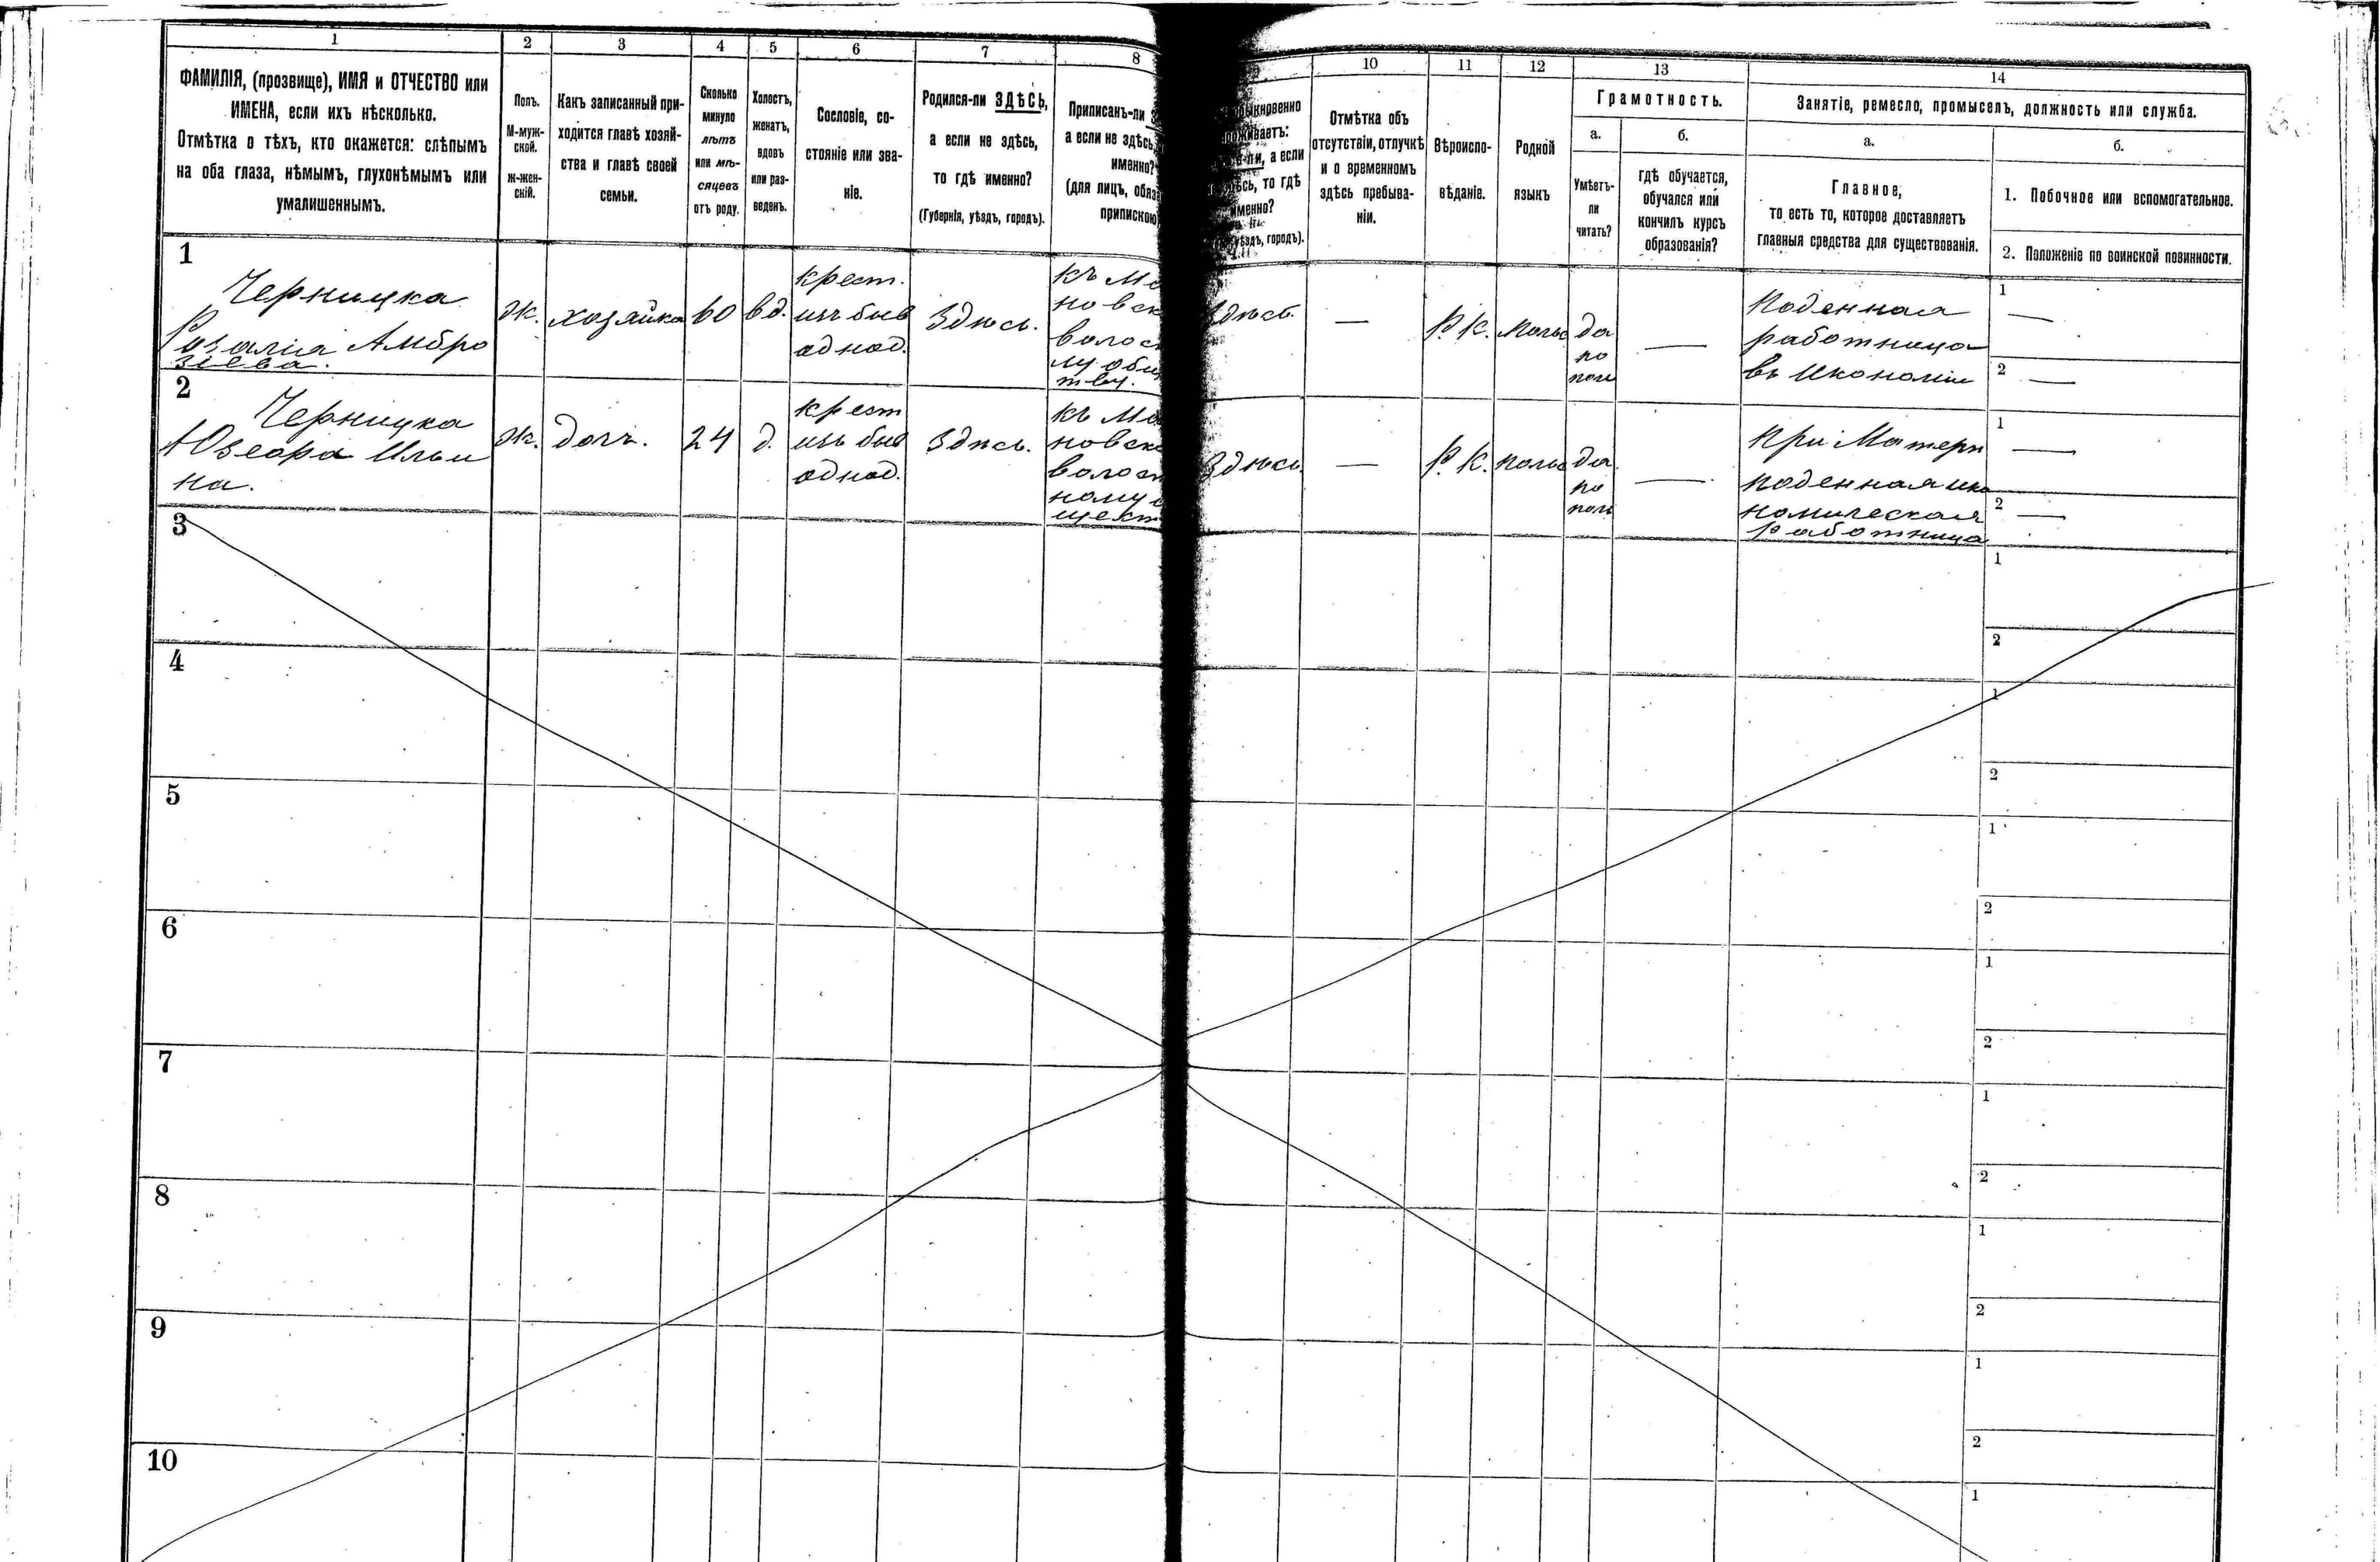 1
2
3
4
5
6
7
8
ФАМИЛІЯ, (прозвище), ИМЯ и ОТЧЕСТВО или
ИМЕНА, если ихъ нѣсколько.
Отмѣтка о тѣхъ, кто окажется: слѣпымъ
на оба глаза, нѣмымъ, глухонѣмымъ или
умалишеннымъ.
Полъ.
М-муж-
ской.
ж-жен-
скій.
Какъ записанный при-
ходится главѣ хозяй-
ства и главѣ своей
семьи.
Сколько
минуло
лѣтъ
или мѣ-
сяцевъ
отъ роду.
Холостъ,
женатъ,
вдовъ
или раз-
веденъ.
Сословіе, со-
стояніе или зва-
ніе.
Родился-ли ЗДѢСЬ,
а если не здѣсь,
то гдѣ именно?
(Губернія, уѣздъ, городъ).
Приписанъ-ли
а если не здѣсь,
именно?
(для лицъ, обяз
припискою
1
Черницка
Розалія Амбро
зіева.
ж.
хозяйка
60
вд.
крест.
изъ быв
однод.
Здѣсь.
къ Ма
новск
волос
му общ
тву.
2
Черницка
Юзефа Ильи
на.
ж.
дочь.
24
д.
крест
изъ быв
однод.
Здѣсь.
къ Ма
новск
волост
ному о
щест
3
4
5
6
7
8
9
10
10
11
12
13
14
ыкновенно
оживаетъ:
ли, а если
сь, то гдѣ
именно?
уѣздъ, городъ).
Отмѣтка объ
отсутствіи, отлучкѣ
и о временномъ
здѣсь пребыва-
ніи.
Вѣроиспо-
вѣданіе.
Родной
языкъ
Грамотность.
а.
б.
Умѣетъ-
ли
читать?
гдѣ обучается,
обучался или
кончилъ курсъ
образованія?
Занятіе, ремесло, промыселъ, должность или служба.
а.
б.
Главное,
то есть то, которое доставляетъ
главныя средства для существованія.
1. Побочное или вспомогательное.
2. Положеніе по воинской повинности.
Здѣсь.
—
Р. К.
польс
да
по
поль
—
Поденная
работница
въ икономіи
1
—
2
—
Здѣсь.
—
Р. К.
польс
да
по
поль
—
при Матери
поденная ико
номическая
работница
1
—
2
—
1
2
1
2
1
2
1
2
1
2
1
2
1
2
1